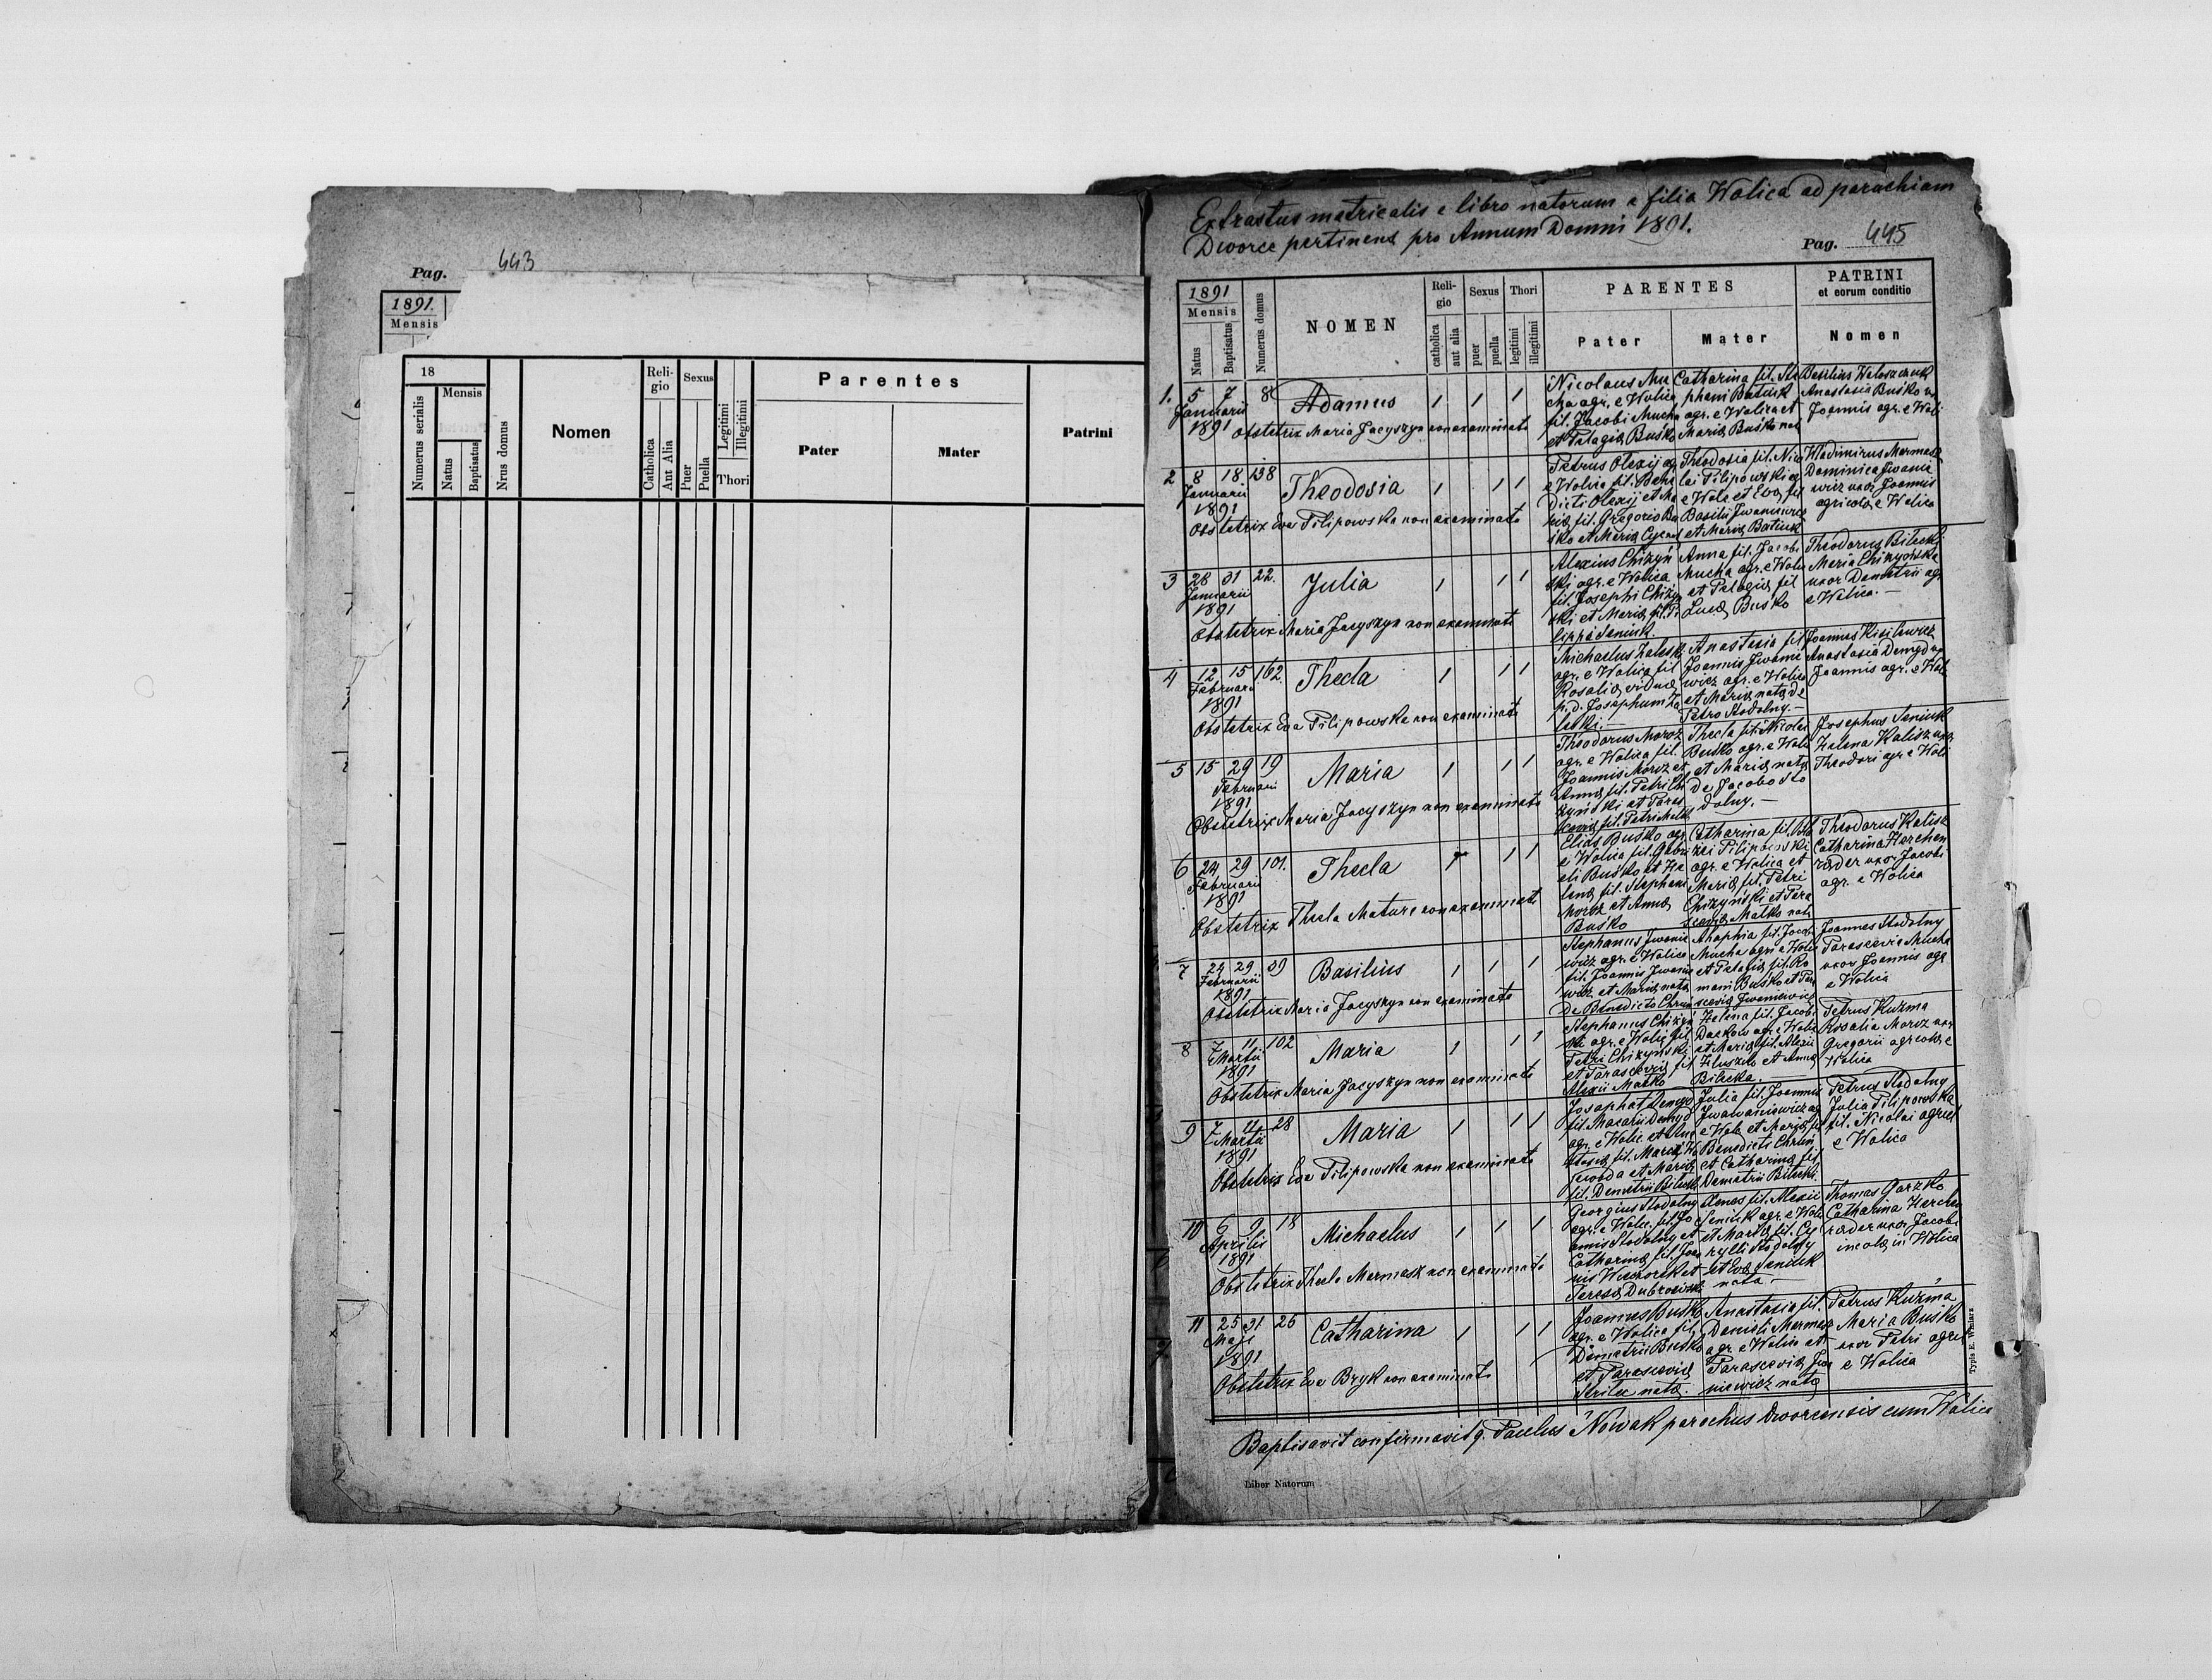 Pag. 443
1891.
Mensis
18
Numerus serialis
Mensis
Natus
Baptisatus
Nrus domus
Nomen
Reli-
gio
Catholica
Aut Alia
Sexus
Puer
Puella
Legitimi
Illegitimi
Thori
Parentes
Pater
Mater
Patrini
Extractus matricalis e libro natorum e filia Wolica ad parochiam
Dworce pertinens pro Annum Domni 1891.
Pag. 445
1891
Mensis
Natus
Baptisatus
Numerus domus
NOMEN
Reli-
gio
catholica
aut alia
Sexus
puer
puella
Thori
legitimi
illegitimi
PARENTES
Pater
Mater
PATRINI
et eorum conditio
Nomen
1. 5 7 8 Adamus 1 1 1
Januarii
1891
Obstetrix Maria Jacyszyn non examinata
Nicolaus Mu
cha agr. e Wolica
fil. Jacobi Mucha
et Pelagiæ Buśko
Catharina fil. Ste
phani Batiuk
agr. e Wolica et
Mariæ Buśko nat
Basilius Woloszczuk
Anastasia Buśko ux
Joannis agr. e Woli
2 8 18 138 Theodosia 1 1 1
Januarii
1891
Obstetrix Eva Pilipowska non examinata
Petrus Olexij ag
e Wolica fil. Bene
dicti Olexij et Ma
riæ fil. Gregorio Bu
śko et Mariæ
Theodosia fil. Nico
lai Pilipowski ag
e Wola et Evæ fil
Basilii Iwaniewicz
et Mariæ Batiuk
Wladimirus Mermasz
Dominica Iwanie
wicz uxor Joannis
agricolæ e Wolica
3 28 31 22. Julia 1 1 1
Januarii
1891
Obstetrix Maria Jacyszyn non examinata
Alexius Chizyń
ski agr. e Wolica
fil. Josephi Chizyń
ski et Mariæ fil. Fi
lippi Seniuk.
Anna fil. Jacobi
Mucha agr. e Woli
et Pelagiæ fil
Lucæ Buśko
Theodorus Bilecki
Maria Chizyńska
uxor Demetrii agr
e Wolica. —
4 12 15 162. Thecla 1 1 1
Februarii
1891
Obstetrix Eva Pilipowska non examinata
Michaelus Zaleski
agr. e Wolica fil
Rosaliæ viduæ
p. d. Josephum Za
leski. —
Anastasia fil
Joannis Iwanie
wicz agr. e Wolica
et Mariæ natæ de
Petro Stodolny. —
Joannes Kisilewicz
Anastasia Demyd ux
Joannis agr. e Woli
5 15 29 19 Maria 1 1 1
Februarii
1891
Obstetrix Maria Jacyszyn non examinata
Theodorus Moroz
agr. e Wolica fil.
Joannis Moroz et
Annæ fil. Petri Chi
zyński et Paras
ceviæ fil. Petri
Thecla fil. Nicolai
Buśko agr. e Wola
et Mariæ natæ
de Jacobo Sto
dolny. —
Josephus Seniuk
Helena Kalisz uxor
Theodori agr. e Woli
6 24 29 101. Thecla 1 1 1
Februarii
1891
Obstetrix Thecla non examinata
Elias Buśko agr
e Wolica fil. Gabri
eli Buśko et He
lenæ fil. Stephani
Moroz et Annæ
Buśko
Catharina fil.
Pilipowski
agr. e Wolica et
Mariæ fil. Petri
Chizyński et Para
sceviæ Matko nat
Theodorus Kalisz
Catharina Herchen
räder uxor Jacobi
agr. e Wolica
7 24 29 39 Basilius 1 1 1
Februarii
1891
Obstetrix Maria Jacyszyn non examinata
Stephanus Iwanie
wicz agr. e Wolica
fil. Joannis Iwanie
wicz et Mariæ nata
de Benedicto
Ahaphia fil. Jacobi
Mucha agr. e Wolic
et Pelagiæ fil. Ro
mani Buśko et Par
sceviæ Iwaniewicz
Joannes Stodolny
Parascevia Mucha
uxor Joannis agr
e Wolica
8 7 11 102 Maria 1 1 1
Martii
1891
Obstetrix Maria Jacyszyn non examinata
Stephanus Chizyń
ski agr. e Wolic fil
Petri Chizyński
et Parasceviæ fil
Alexii Matko
Helena fil. Jacobi
Daćków agr. e Wola
et Mariæ fil. Alexii
et Annæ
Bilecka.
Petrus Kuzma
Rosalia Moroz uxor
Gregorii agricolæ e
Wolica
9 7 11 28 Maria 1 1 1
Martii
1891
Obstetrix Eva Pilipowska non examinata
Josaphat Demyd
fil. Macarii Demyd
agr. e Wolic et Ana
stasiæ fil. Marci
et Mariæ
fil. Demetrii Bilecki
Julia fil. Joannis
Iwaniewicz ag
e Wola et Mariæ fil
Benedicti
et Catharinæ fil
Demetrii Bilecki.
Petrus Stodolny
Julia Pilipowska
fil. Nicolai agric
e Wolica
10 6 9 18 Michaelus 1 1 1
Aprilis
1891
Obstetrix Thecla Mermasz non examinata
Georgius Stodolny
agr. e Wolic. fil. Jo
annis Stodolny et
Catharinæ fil. Joan
nis Wieczorek et
Teresæ Dubrowska
Xenas fil. Alexii
Seniuk agr. e Woli
et Marthæ fil. Cy
rylli Stodolny
et Evæ Seniuk
nata —
Thomas Garzko
Catharina Herchen
räder uxor Jacobi
incolæ in Wolica
11 25 31 26 Catharina 1 1 1
Maji
1891
Obstetrix Eva Bryk non examinata
Joannes Buśko
agr. e Wolica fil.
Demetrii Buśko
et Parasceviæ
natæ.
Anastasia fil.
Danieli Mermasz
agr. e Wolica et
Parasceviæ Iwa
niewicz natæ
Petrus Kuźma
Maria Buśko
uxor Petri agric
e Wolica
Baptisavit confirmavit q. Paulus Nowak parochus Dworcensis cum Wolica
Liber Natorum
Typis E. Winiarz